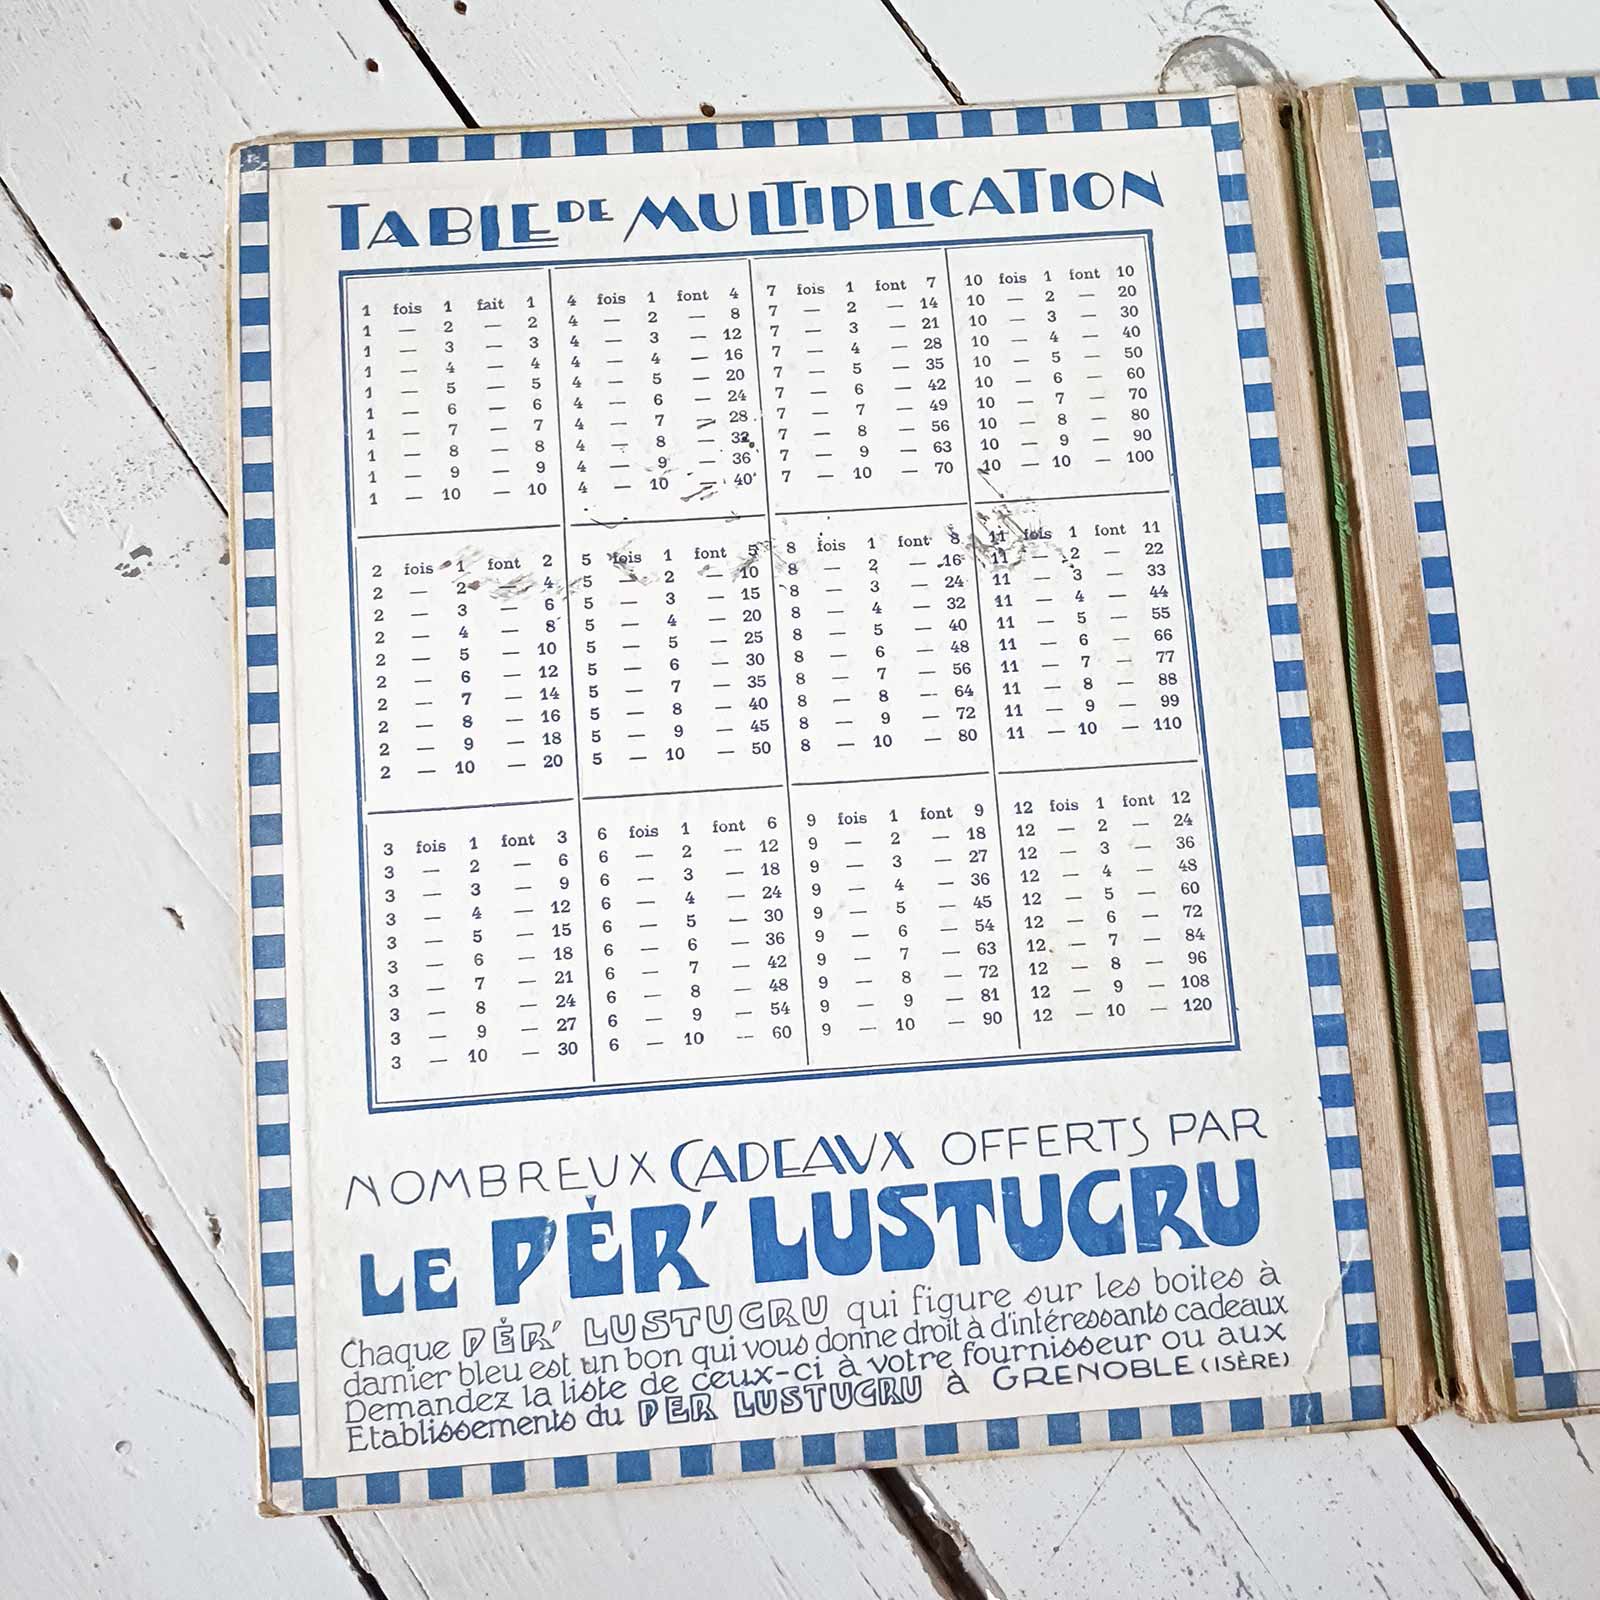 TABLE DE MULTIPLICATION
1 fois 1 fait 1
1 — 2 — 2
1 — 3 — 3
1 — 4 — 4
1 — 5 — 5
1 — 6 — 6
1 — 7 — 7
1 — 8 — 8
1 — 9 — 9
1 — 10 — 10
4 fois 1 font 4
4 — 2 — 8
4 — 3 — 12
4 — 4 — 16
4 — 5 — 20
4 — 6 — 24
4 — 7 — 28
4 — 8 — 32
4 — 9 — 36
4 — 10 — 40
7 fois 1 font 7
7 — 2 — 14
7 — 3 — 21
7 — 4 — 28
7 — 5 — 35
7 — 6 — 42
7 — 7 — 49
7 — 8 — 56
7 — 9 — 63
7 — 10 — 70
10 fois 1 font 10
10 — 2 — 20
10 — 3 — 30
10 — 4 — 40
10 — 5 — 50
10 — 6 — 60
10 — 7 — 70
10 — 8 — 80
10 — 9 — 90
10 — 10 — 100
2 fois 1 font 2
2 — 2 — 4
2 — 3 — 6
2 — 4 — 8
2 — 5 — 10
2 — 6 — 12
2 — 7 — 14
2 — 8 — 16
2 — 9 — 18
2 — 10 — 20
5 fois 1 font 5
5 — 2 — 10
5 — 3 — 15
5 — 4 — 20
5 — 5 — 25
5 — 6 — 30
5 — 7 — 35
5 — 8 — 40
5 — 9 — 45
5 — 10 — 50
8 fois 1 font 8
8 — 2 — 16
8 — 3 — 24
8 — 4 — 32
8 — 5 — 40
8 — 6 — 48
8 — 7 — 56
8 — 8 — 64
8 — 9 — 72
8 — 10 — 80
11 fois 1 font 11
11 — 2 — 22
11 — 3 — 33
11 — 4 — 44
11 — 5 — 55
11 — 6 — 66
11 — 7 — 77
11 — 8 — 88
11 — 9 — 99
11 — 10 — 110
3 fois 1 font 3
3 — 2 — 6
3 — 3 — 9
3 — 4 — 12
3 — 5 — 15
3 — 6 — 18
3 — 7 — 21
3 — 8 — 24
3 — 9 — 27
3 — 10 — 30
6 fois 1 font 6
6 — 2 — 12
6 — 3 — 18
6 — 4 — 24
6 — 5 — 30
6 — 6 — 36
6 — 7 — 42
6 — 8 — 48
6 — 9 — 54
6 — 10 — 60
9 fois 1 font 9
9 — 2 — 18
9 — 3 — 27
9 — 4 — 36
9 — 5 — 45
9 — 6 — 54
9 — 7 — 63
9 — 8 — 72
9 — 9 — 81
9 — 10 — 90
12 fois 1 font 12
12 — 2 — 24
12 — 3 — 36
12 — 4 — 48
12 — 5 — 60
12 — 6 — 72
12 — 7 — 84
12 — 8 — 96
12 — 9 — 108
12 — 10 — 120
NOMBREUX CADEAUX OFFERTS PAR
LE PÈR' LUSTUCRU
Chaque PÈR' LUSTUCRU qui figure sur les boites à
damier bleu est un bon qui vous donne droit à d'intéressants cadeaux
Demandez la liste de ceux-ci à votre fournisseur ou aux
Etablissements du PÈR LUSTUCRU à GRENOBLE (ISÈRE)